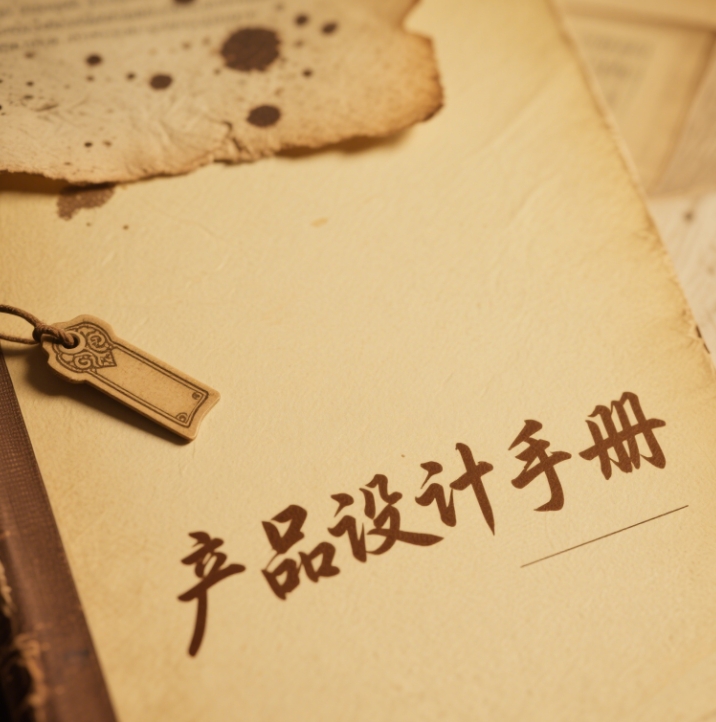 产品设计手册